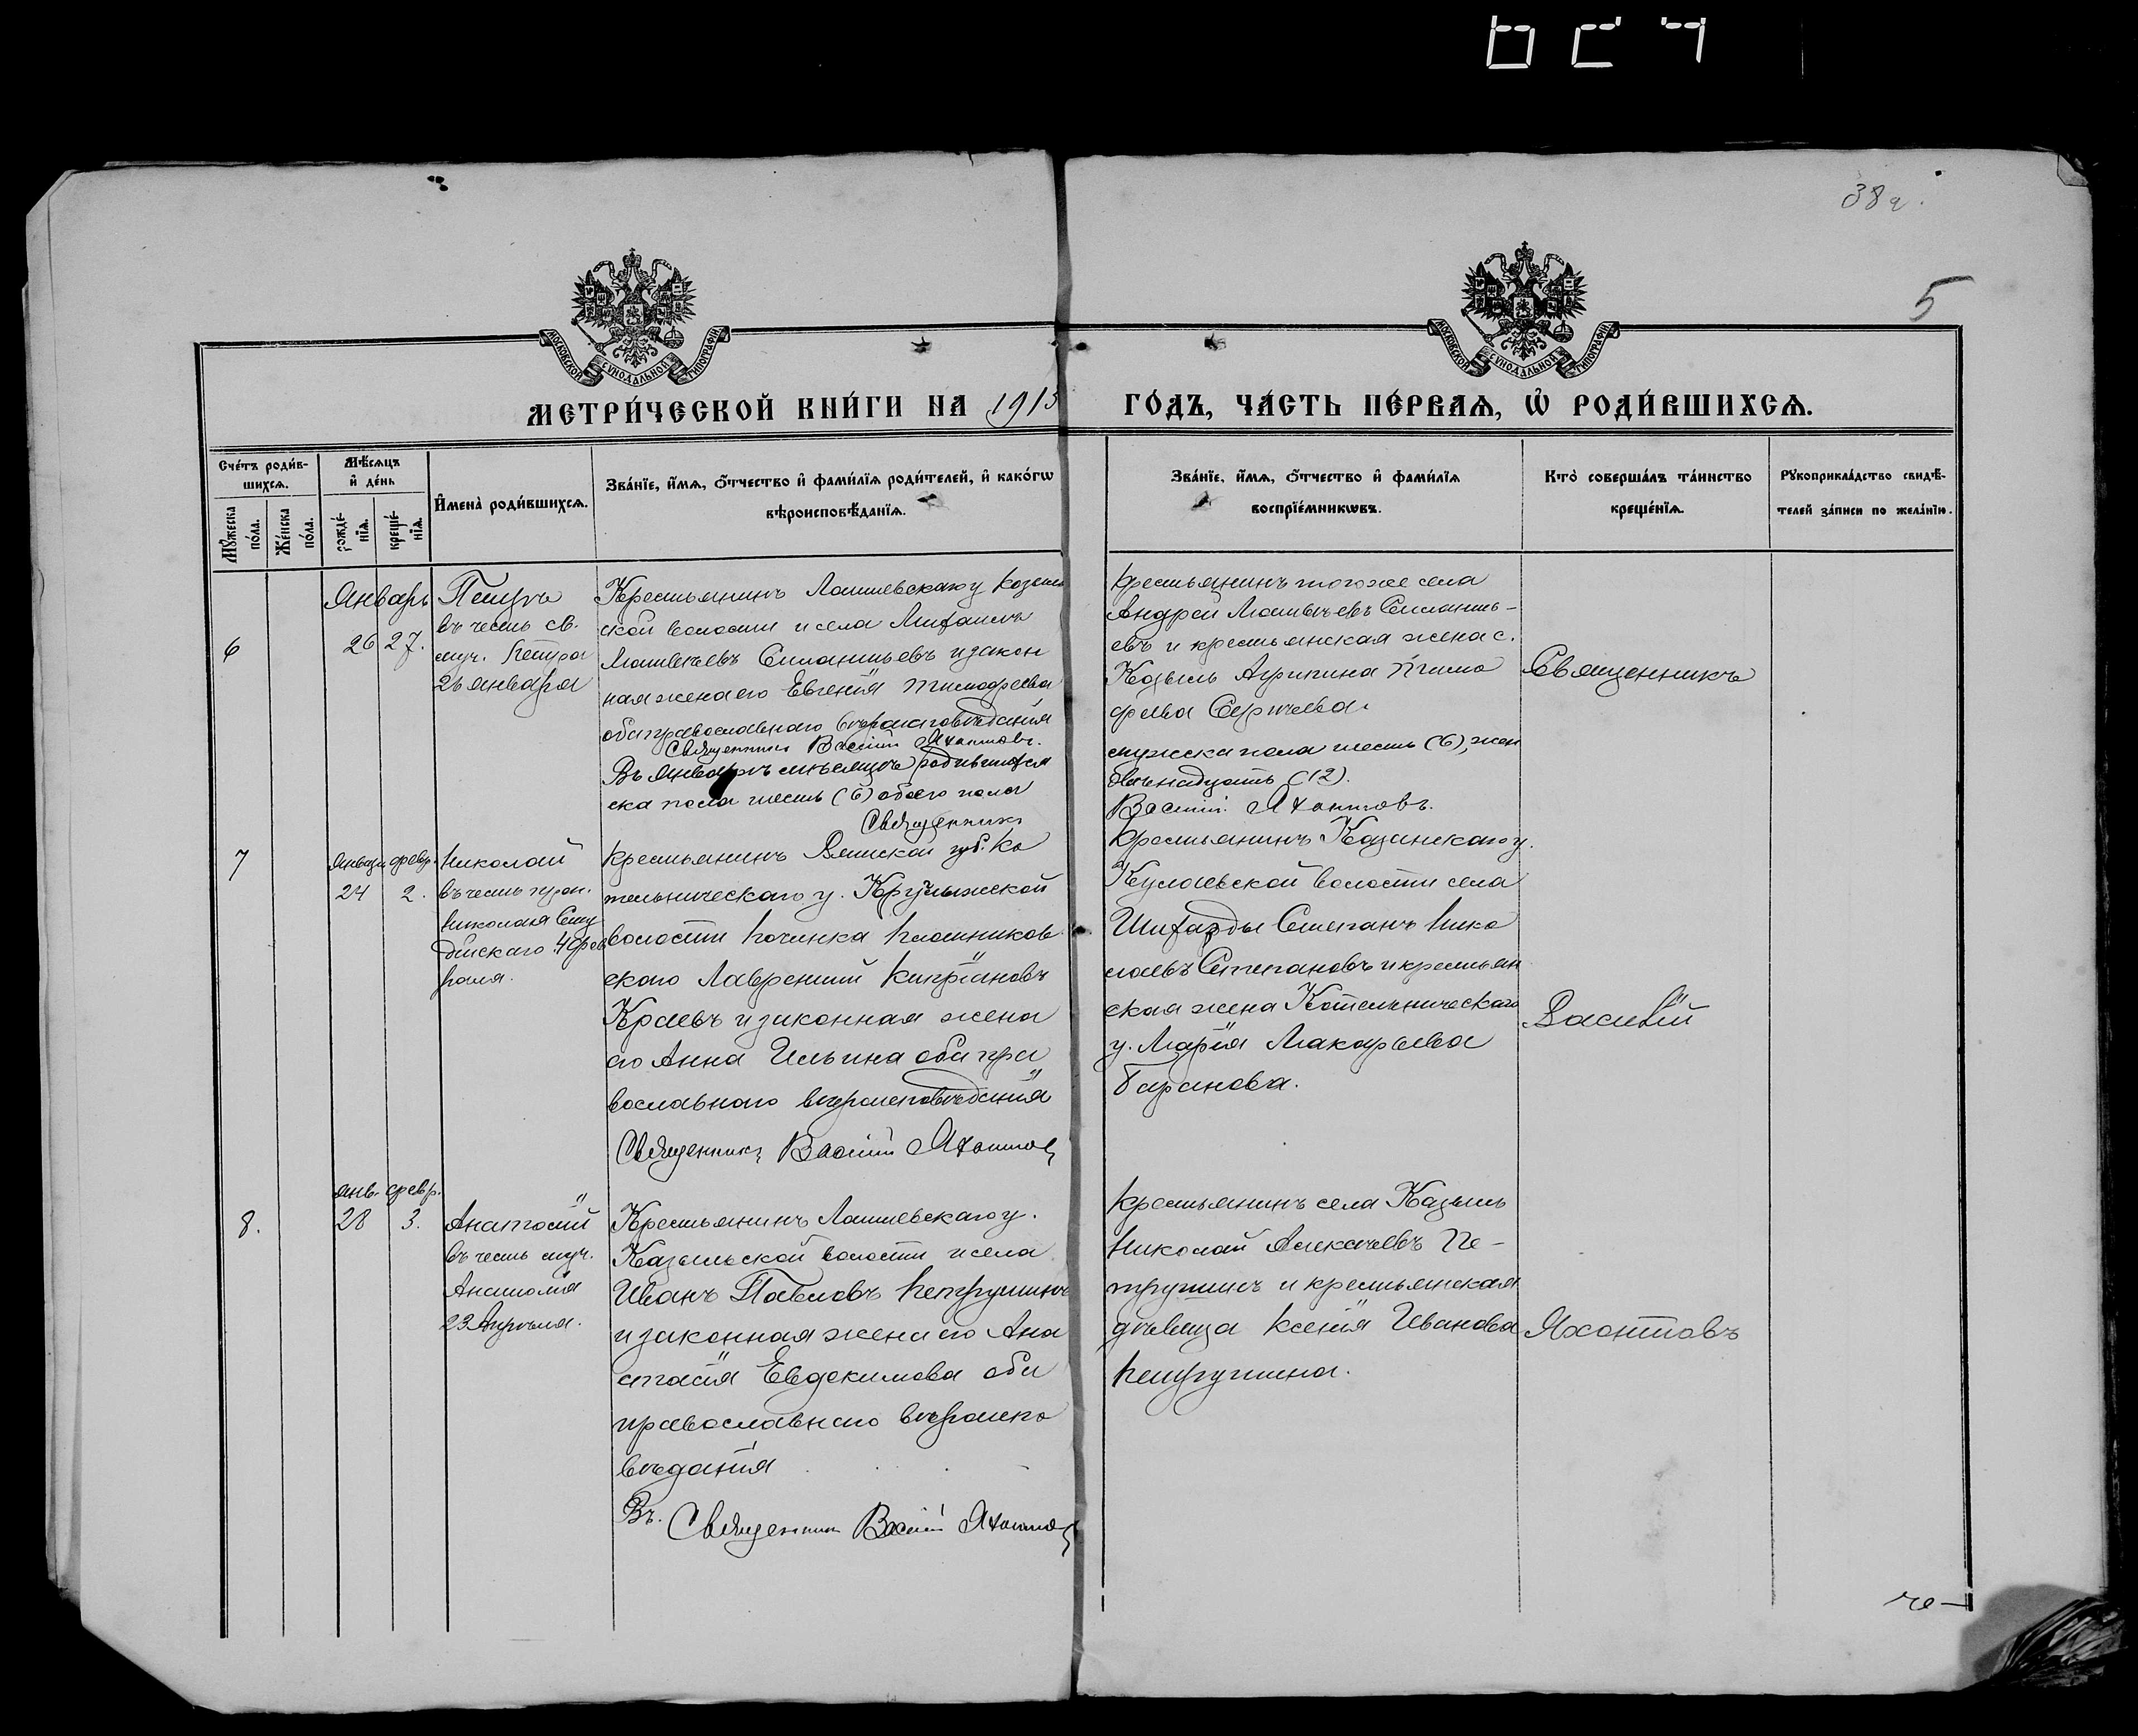 38 ч.
5
МОСКОВСКОЙ СѴНОДАЛЬНОЙ ТИПОГРАФІИ
МОСКОВСКОЙ СѴНОДАЛЬНОЙ ТИПОГРАФІИ
МЕТРИ́ЧЕСКОЙ КНИ́ГИ НА 1913 ГО́ДЪ, ЧА́СТЬ ПЕ́РВАѦ, Ѽ РОДИ́ВШИХСѦ.
Сче́тъ роди́в-
шихсѧ.
Мꙋ́жеска
по́ла.
Же́нска
по́ла.
Мѣ́сѧцъ
и҆ де́нь
рожде́-
нїѧ.
креще́-
нїѧ.
И҆мена̀ роди́вшихсѧ.
Зва́нїе, и҆́мѧ, ѻ҆́тчество и҆ фами́лїѧ роди́телей, и҆ како́гѡ
вѣроисповѣ́данїѧ.
Зва́нїе, и҆́мѧ, ѻ҆́тчество и҆ фами́лїѧ
воспрїе́мникѡвъ.
Кто̀ соверша́лъ та́инство
креще́нїѧ.
Рꙋкоприкла́дство свидѣ́-
телей за́писи по жела́нїю.
6
Январь
26 27.
Петръ
въ честь св.
муч. Петра
26 января
Крестьянинъ Лаишевскаго у Козыль
ской волости и села Михаилъ
Матвѣевъ Силантьевъ и закон
ная жена его Евгенія Тимофеева
оба православнаго вѣроисповѣданія
Священникъ Василій Яхонтовъ.
Въ январѣ мѣсяцѣ родившихся
ска пола шесть (6) обоего пола
Священникъ
крестьянинъ тогоже села
Андрей Матвѣевъ Силанть-
евъ и крестьянская жена с.
Козыль Агрипина Тимо
феева Сергѣева.
мужска пола шесть (6), жен
двѣнадцать (12).
Василій Яхонтовъ.
Священникъ
7
январи февр.
24 2.
Николай
въ честь преп.
Николая Сту
дійскаго 4 фев
раля.
крестьянинъ Вятской губ. Ко
тельническаго у.
волости починка
скаго Лаврентій Кипріановъ
Краевъ и законная жена
его Анна Ильина оба пра
вославнаго вѣроисповѣданія
Священникъ Василій Яхонтовъ
Крестьянинъ Казанскаго у.
Кулаевской волости села
Степанъ Нико
лаевъ Степановъ и крестьян
ская жена Котельническаго
у. Марія Макарьева
Баранова.
Василій
8.
янв. февр.
28 3.
Анатолій
въ честь муч.
Анатолія
23 Апрѣля.
Крестьянинъ Лаишевскаго у.
Казыльской волости и села
Иванъ Павловъ Петрушинъ
и законная жена его Ана
стасія Евдокимова оба
православнаго вѣроиспо
вѣданія
Въ. Священникъ Василій Яхонтовъ
крестьянинъ села Казыль
Николай Алексѣевъ Пе-
трушинъ и крестьянская
дѣвица Ксенія Иванова
Петрушина.
Яхонтовъ
че-